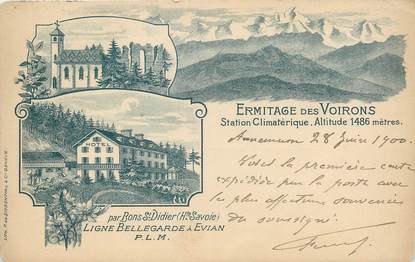 ERMITAGE DES VOIRONS
Station Climatérique, Altitude 1486 mètres.
28 Juin 1900.
Voici la première carte
expédiée par la poste avec
les plus affectueux souvenirs
du soussigné.
HOTEL
par Bons-St Didier (Hte Savoie)
LIGNE BELLEGARDE à EVIAN
P.L.M.